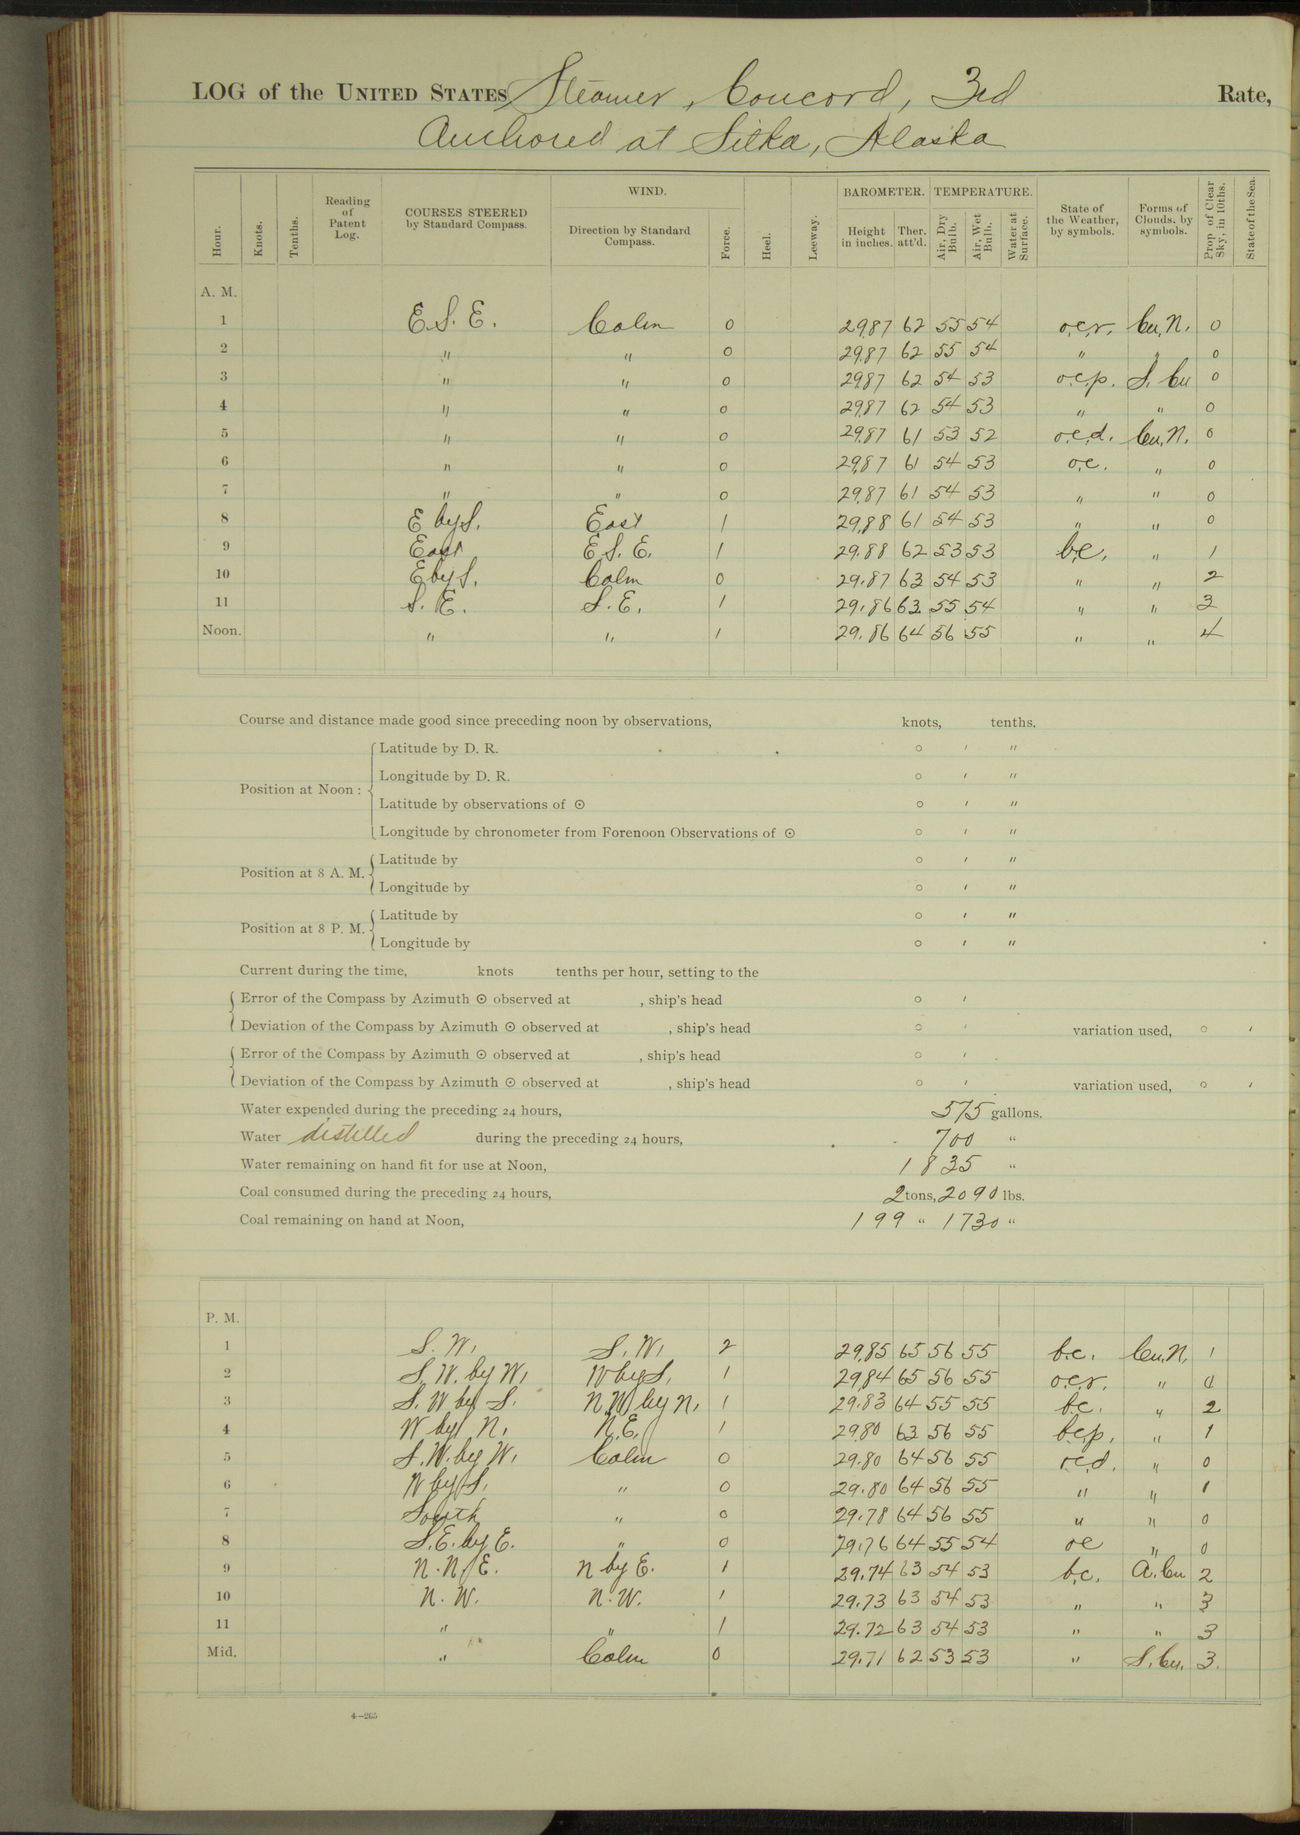 LOG of the UNITED STATES Steamer, Concord, 3rd Rate,
Anchored at Sitka, Alaska
Hour. Knots. Tenths. Reading of Patent Log. COURSES STEERED by Standard Compass. WIND. Direction by Standard Compass. Force. Heel. Leeway. BAROMETER. Height in inches. Ther. att'd. TEMPERATURE. Air, Dry Bulb. Air, Wet Bulb. Water at Surface. State of the Weather, by symbols. Forms of Clouds, by symbols. Prop. of Clear Sky, in 10ths. State of the Sea.
A. M.
1 E.S.E. Calm 0 29.87 62 55 54 o.c.r. Cu.N. 0
2 " " 0 29.87 62 55 54 " " 0
3 " " 0 29.87 62 54 53 o.c.p. S.Cu 0
4 " " 0 29.87 62 54 53 " " 0
5 " " 0 29.87 61 53 52 o.c.d. Cu.N. 0
6 " " 0 29.87 61 54 53 o.c. " 0
7 " " 0 29.87 61 54 53 " " 0
8 E by S. East 1 29.88 61 54 53 " " 0
9 East E.S.E. 1 29.88 62 53 53 b.c. " 1
10 E by S. Calm 0 29.87 63 54 53 " " 2
11 S.E. S.E. 1 29.86 63 55 54 " " 3
Noon. " " 1 29.86 64 56 55 " " 4
Course and distance made good since preceding noon by observations, knots, tenths.
Position at Noon: Latitude by D. R. ° ' "
Longitude by D. R. ° ' "
Latitude by observations of ☉ ° ' "
Longitude by chronometer from Forenoon Observations of ☉ ° ' "
Position at 8 A. M. Latitude by ° ' "
Longitude by ° ' "
Position at 8 P. M. Latitude by ° ' "
Longitude by ° ' "
Current during the time, knots tenths per hour, setting to the
Error of the Compass by Azimuth ☉ observed at , ship's head ° '
Deviation of the Compass by Azimuth ☉ observed at , ship's head ° ' variation used, ° '
Error of the Compass by Azimuth ☉ observed at , ship's head ° '
Deviation of the Compass by Azimuth ☉ observed at , ship's head ° ' variation used, ° '
Water expended during the preceding 24 hours, 575 gallons.
Water distilled during the preceding 24 hours, 700 "
Water remaining on hand fit for use at Noon, 1835 "
Coal consumed during the preceding 24 hours, 2 tons, 2090 lbs.
Coal remaining on hand at Noon, 199 " 1730 "
P. M.
1 S.W. S.W. 2 29.85 65 56 55 b.c. Cu.N. 1
2 S.W. by W. W by S. 1 29.84 65 56 55 o.c.r. " 0
3 S.W by S. N.W by N. 1 29.83 64 55 55 b.c. " 2
4 W by N. N.E. 1 29.80 63 56 55 b.c.p. " 1
5 S.W. by W. Calm 0 29.80 64 56 55 o.c.d. " 0
6 W by S. " 0 29.80 64 56 55 " " 1
7 South " 0 29.78 64 56 55 " " 0
8 S.E. by E. " 0 29.76 64 55 54 oc " 0
9 N.N.E. N by E. 1 29.74 63 54 53 b.c. A.Cu 2
10 N.W. N.W. 1 29.73 63 54 53 " " 3
11 " " 1 29.72 63 54 53 " " 3
Mid. " Calm 0 29.71 62 53 53 " S.Cu. 3.
4—265